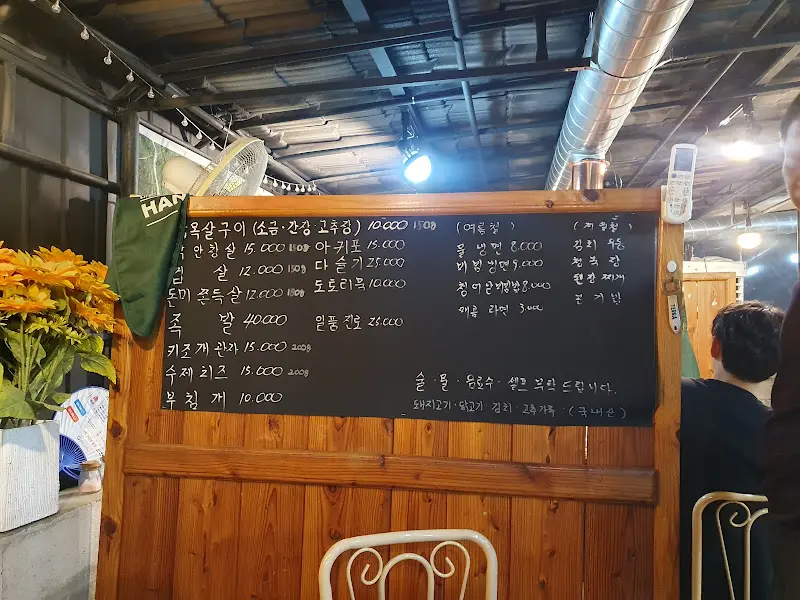 HAN
목살구이 (소금·간장 고추장) 10.000 150g
안창살 15.000 150g
살 12.000 150g
돈미 쫀득살 12.000 150g
족 발 40.000
키조개 관자 15.000 200g
수제 치즈 15.000 200g
부 침 개 10.000
아귀포 15.000
다 슬기 25.000
도토리묵 10.000
일품 진로 25.000
(여름철)
물 냉면 8.000
비빔 냉면 9.000
8.000
라면 3.000
김치 우동
찌개
술·물·음료수·셀프 부탁 드립니다.
돼지고기·닭고기·김치·고추가루·(국내산)
TERRA